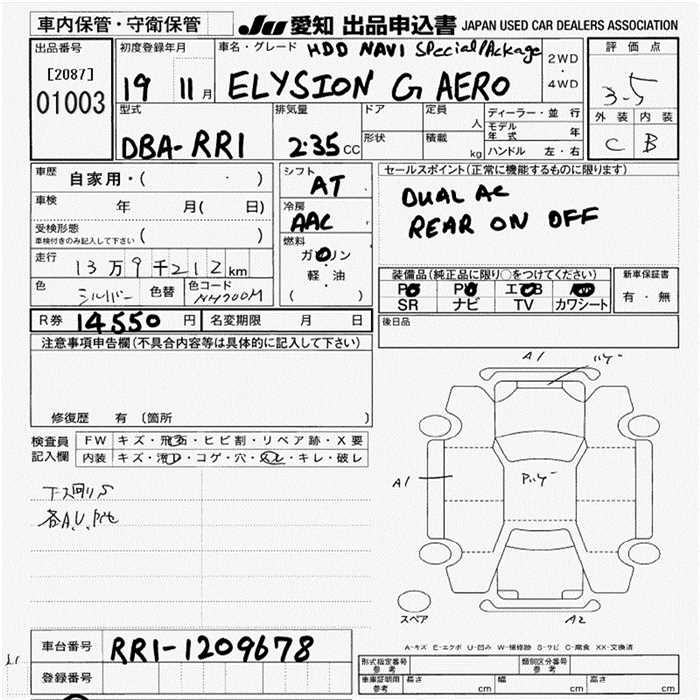 車内保管・守衛保管
JU 愛知 出品申込書 JAPAN USED CAR DEALERS ASSOCIATION
出品番号
[2087]
01003
初度登録年月
19 11月
車名・グレード HDD NAVI Special Package
ELYSION G AERO
2WD
・
4WD
評価点
3.5
外装 内装
C B
型式
DBA-RR1
排気量
2.35CC
ドア
形状
定員 人
積載 kg
ディーラー・並行
モデル年式 年
ハンドル 左・右
車歴 自家用・( ・ )
車検 年 月( 日)
受検形態
車検付きのみ記入して下さい ( )
走行 13万9千212km
色 シルバー 色替 色コード NH700M
シフト
AT
冷房
AAC
燃料
ガソリン
・
軽・油
( )
セールスポイント(正常に機能するものに限ります)
DUAL AC
REAR ON OFF
装備品(純正品に限り○をつけてください)
SR ナビ TV カワシート
新車保証書
有・無
後日品
R券 14550 円 名変期限 月 日
注意事項申告欄(不具合内容等は具体的に記入して下さい)
修復歴 有 〔箇所 〕
検査員
記入欄
FW キズ・飛石・ヒビ割・リペア跡・X要
内装 キズ・コゲ・穴・キレ・破レ
下ス回りS
各A.U.
A1
A1
A2
スペア
A-キズ E-エクボ U-凹み W-補修跡 S-サビ C-腐食 XX-交換済
車台番号 RR1-1209678
登録番号
形式指定番号
参考
類別区分番号
参考
車庫証明用
参考
長さ cm 幅 cm 高さ cm